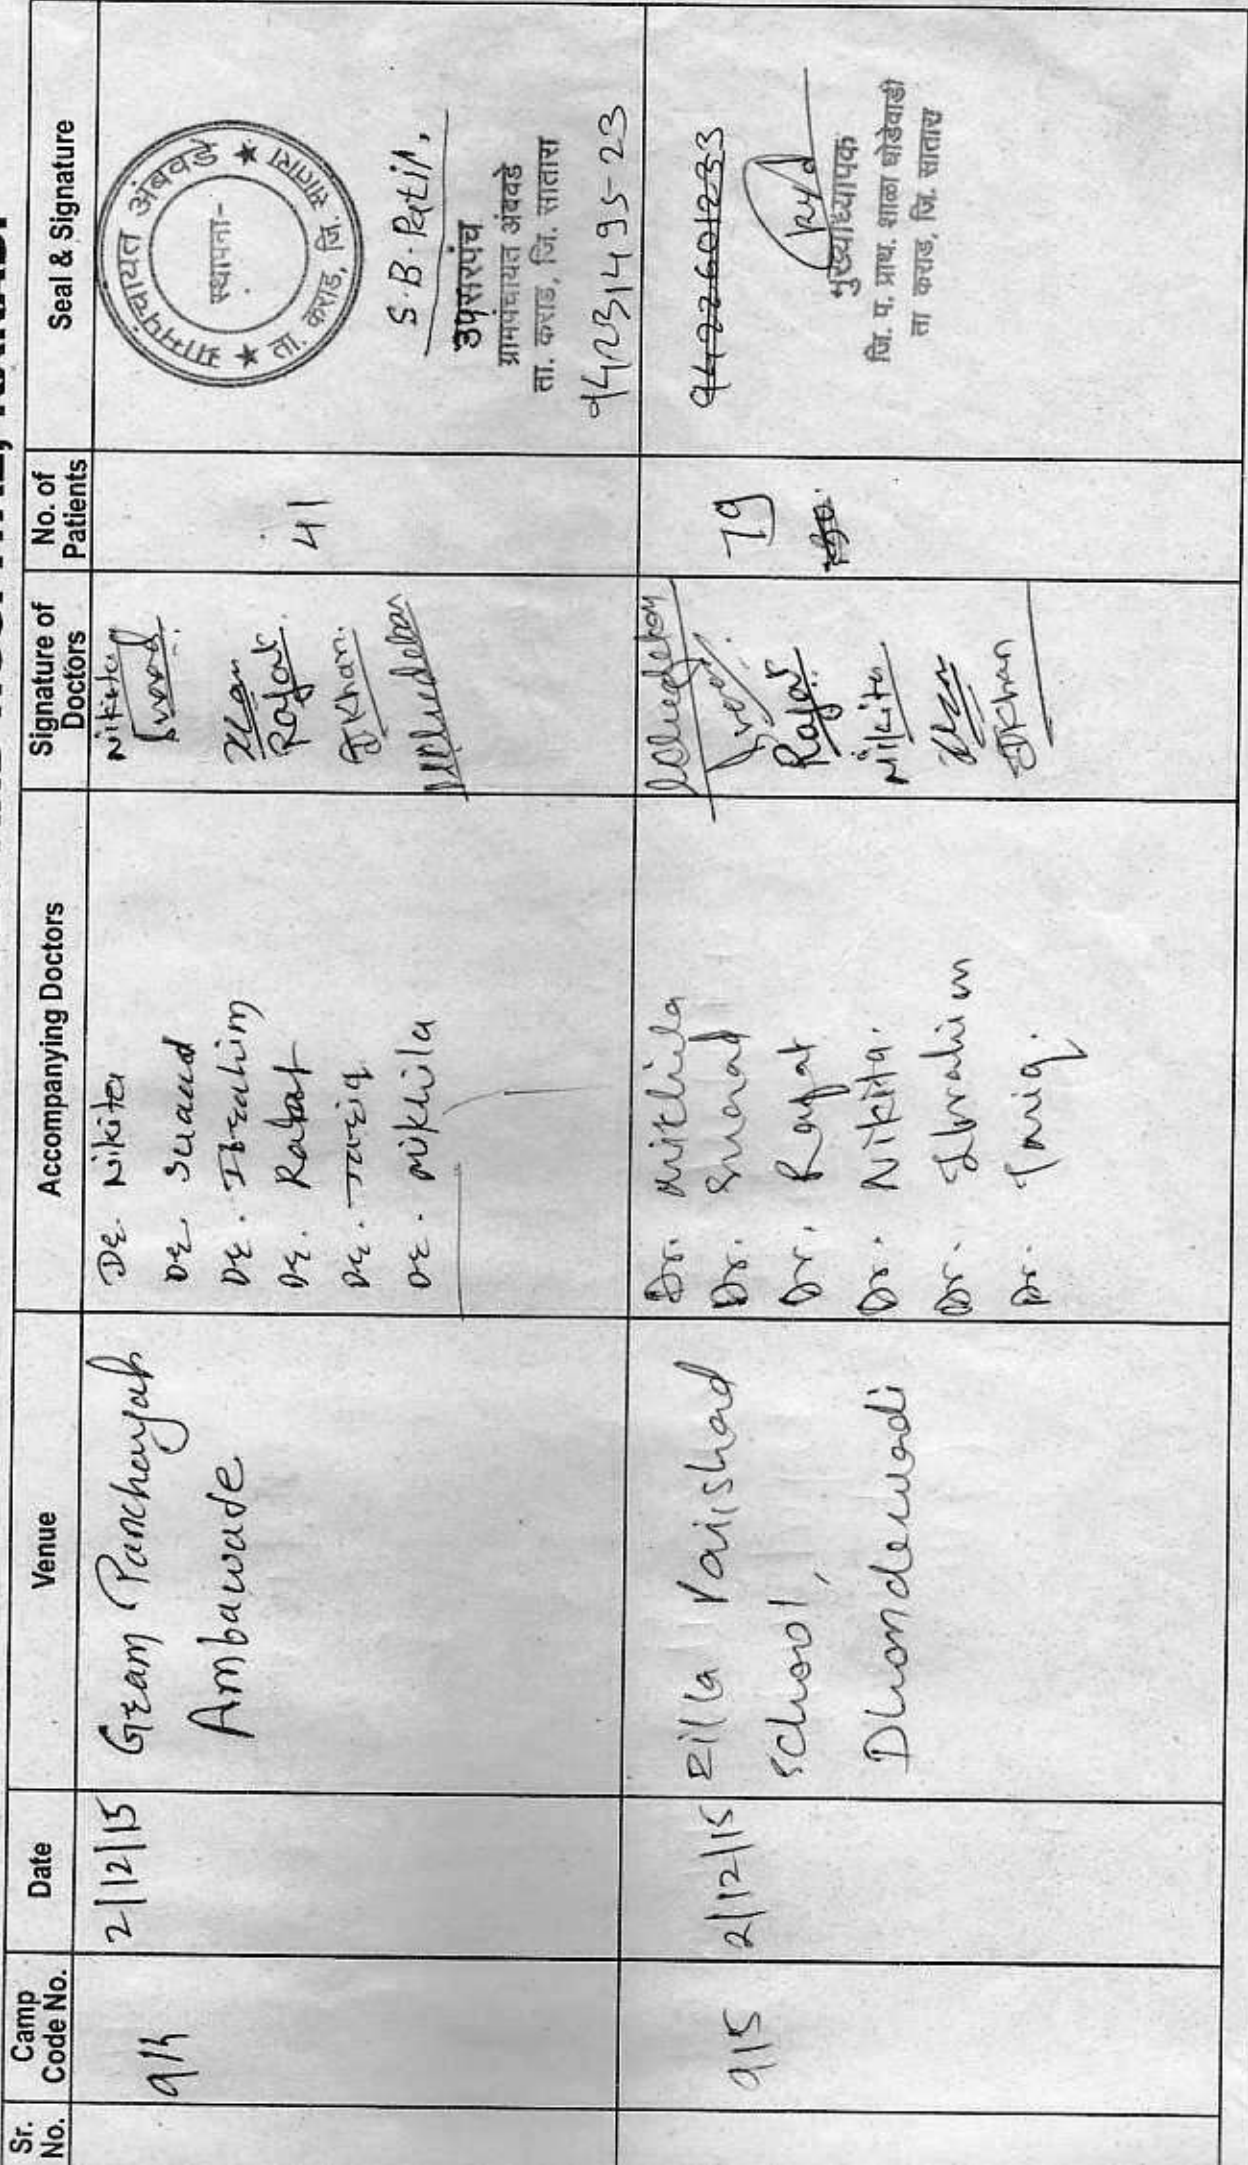 Sr. No.
Camp Code No.
Date
Venue
Accompanying Doctors
Signature of Doctors
No. of Patients
Seal & Signature
2/12/15
Gram Panchayat
Ambawade
Dr. Nikita
Dr. Suaad
Dr. Ibrahim
Dr. Rafat
Dr. Tariq
Dr. Mikhila
Nikita
Rafat
JKhan.
41
ग्रामपंचायत अंबवडे
★ ता. कराड, जि. सातारा ★
स्थापना-
S.B. Patil,
उपसरपंच
ग्रामपंचायत अंबवडे
ता. कराड, जि. सातारा
9423149523
915
2/12/15
Zilla Parishad
School,
Dhondewadi
Dr. Mithila
Dr. Suaad
Dr. Rafat
Dr. Nikita.
Dr. Ibrahim
Dr. Tariq.
Rafat
Nikita
JKhan
79
9422601233
मुख्याध्यापक
जि. प. प्राथ. शाळा धोंडेवाडी
ता कराड, जि. सातारा